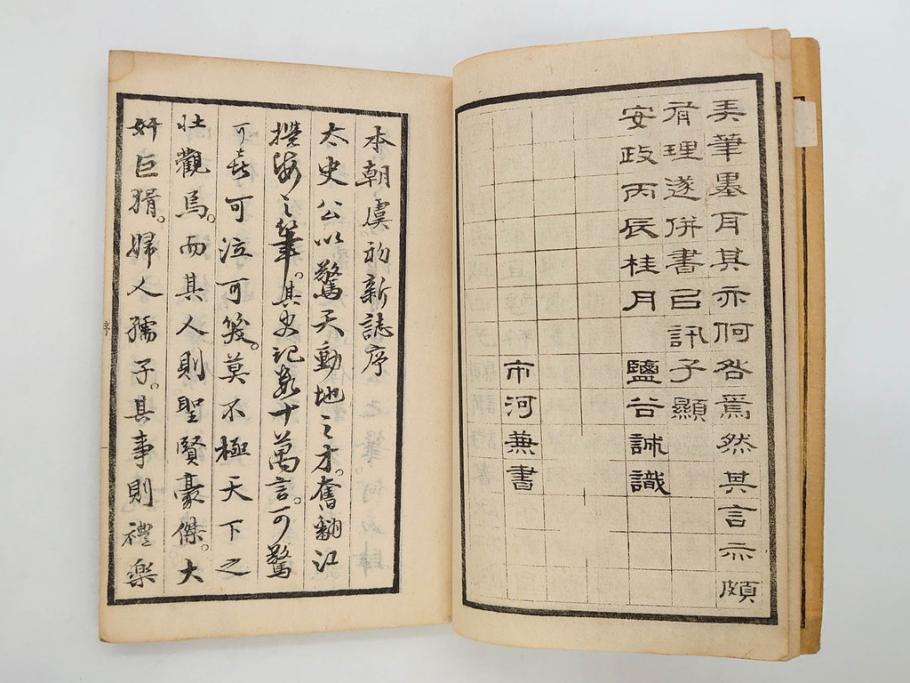 弄筆墨耳其亦何咎焉然其言亦頗
有理遂併書㠯訊子顯
安政丙辰桂月　鹽谷誠識
市河兼書
本朝虞初新誌序
太史公以驚天動地之才。奮翻江
攪海之筆。其史記數十萬言。可驚
可喜可泣可笑。莫不極天下之
壯觀焉。而其人則聖賢豪傑。大
奸巨猾。婦人孺子。其事則禮樂